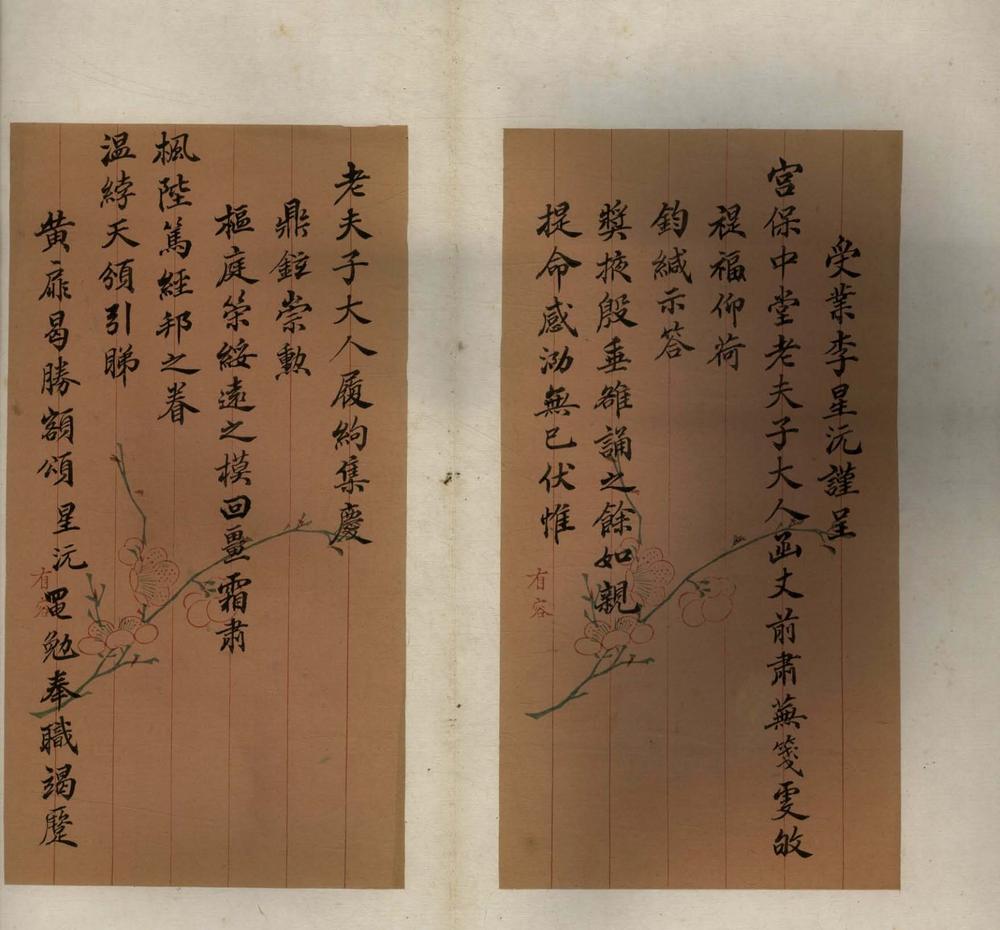 受業李星沅謹呈
宮保中堂老夫子大人函丈前肅蕪箋雯敂
禔福仰荷
鈞緘示答
獎掖殷垂雒誦之餘如親
提命感泐無已伏惟
有容
老夫子大人履絇集慶
鼎鉉崇勳
樞庭策綏遠之模回畺霜肅
楓陛篤經邦之眷
温綍天頒引睇
黄扉曷勝額頌星沅黽勉奉職竭蹷
有容